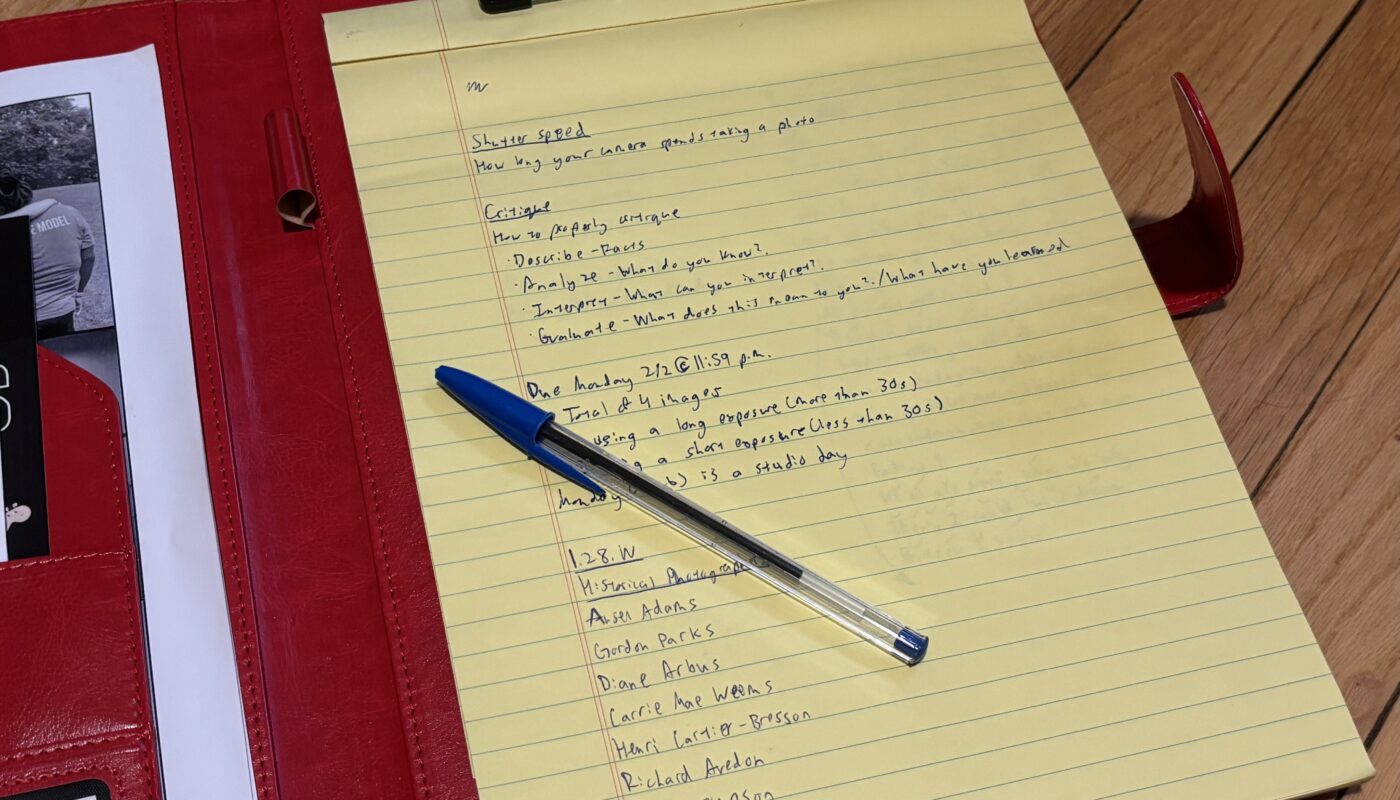 E MODEL
Shutter speed
How long your camera spends taking a photo
Critique
How to properly critique
· Describe - Facts
· Analyze - What do you know?
· Interpret - What can you interpret?
· Evaluate - What does this mean to you?/What have you learned
Due Monday 2/2 @ 11:59 p.m.
Total of 4 images
using a long exposure (more than 30s)
a short exposure (less than 30s)
Monday is a studio day
1.28.W
Historical
Ansel Adams
Gordon Parks
Diane Arbus
Carrie Mae Weems
Henri Cartier-Bresson
Richard Avedon